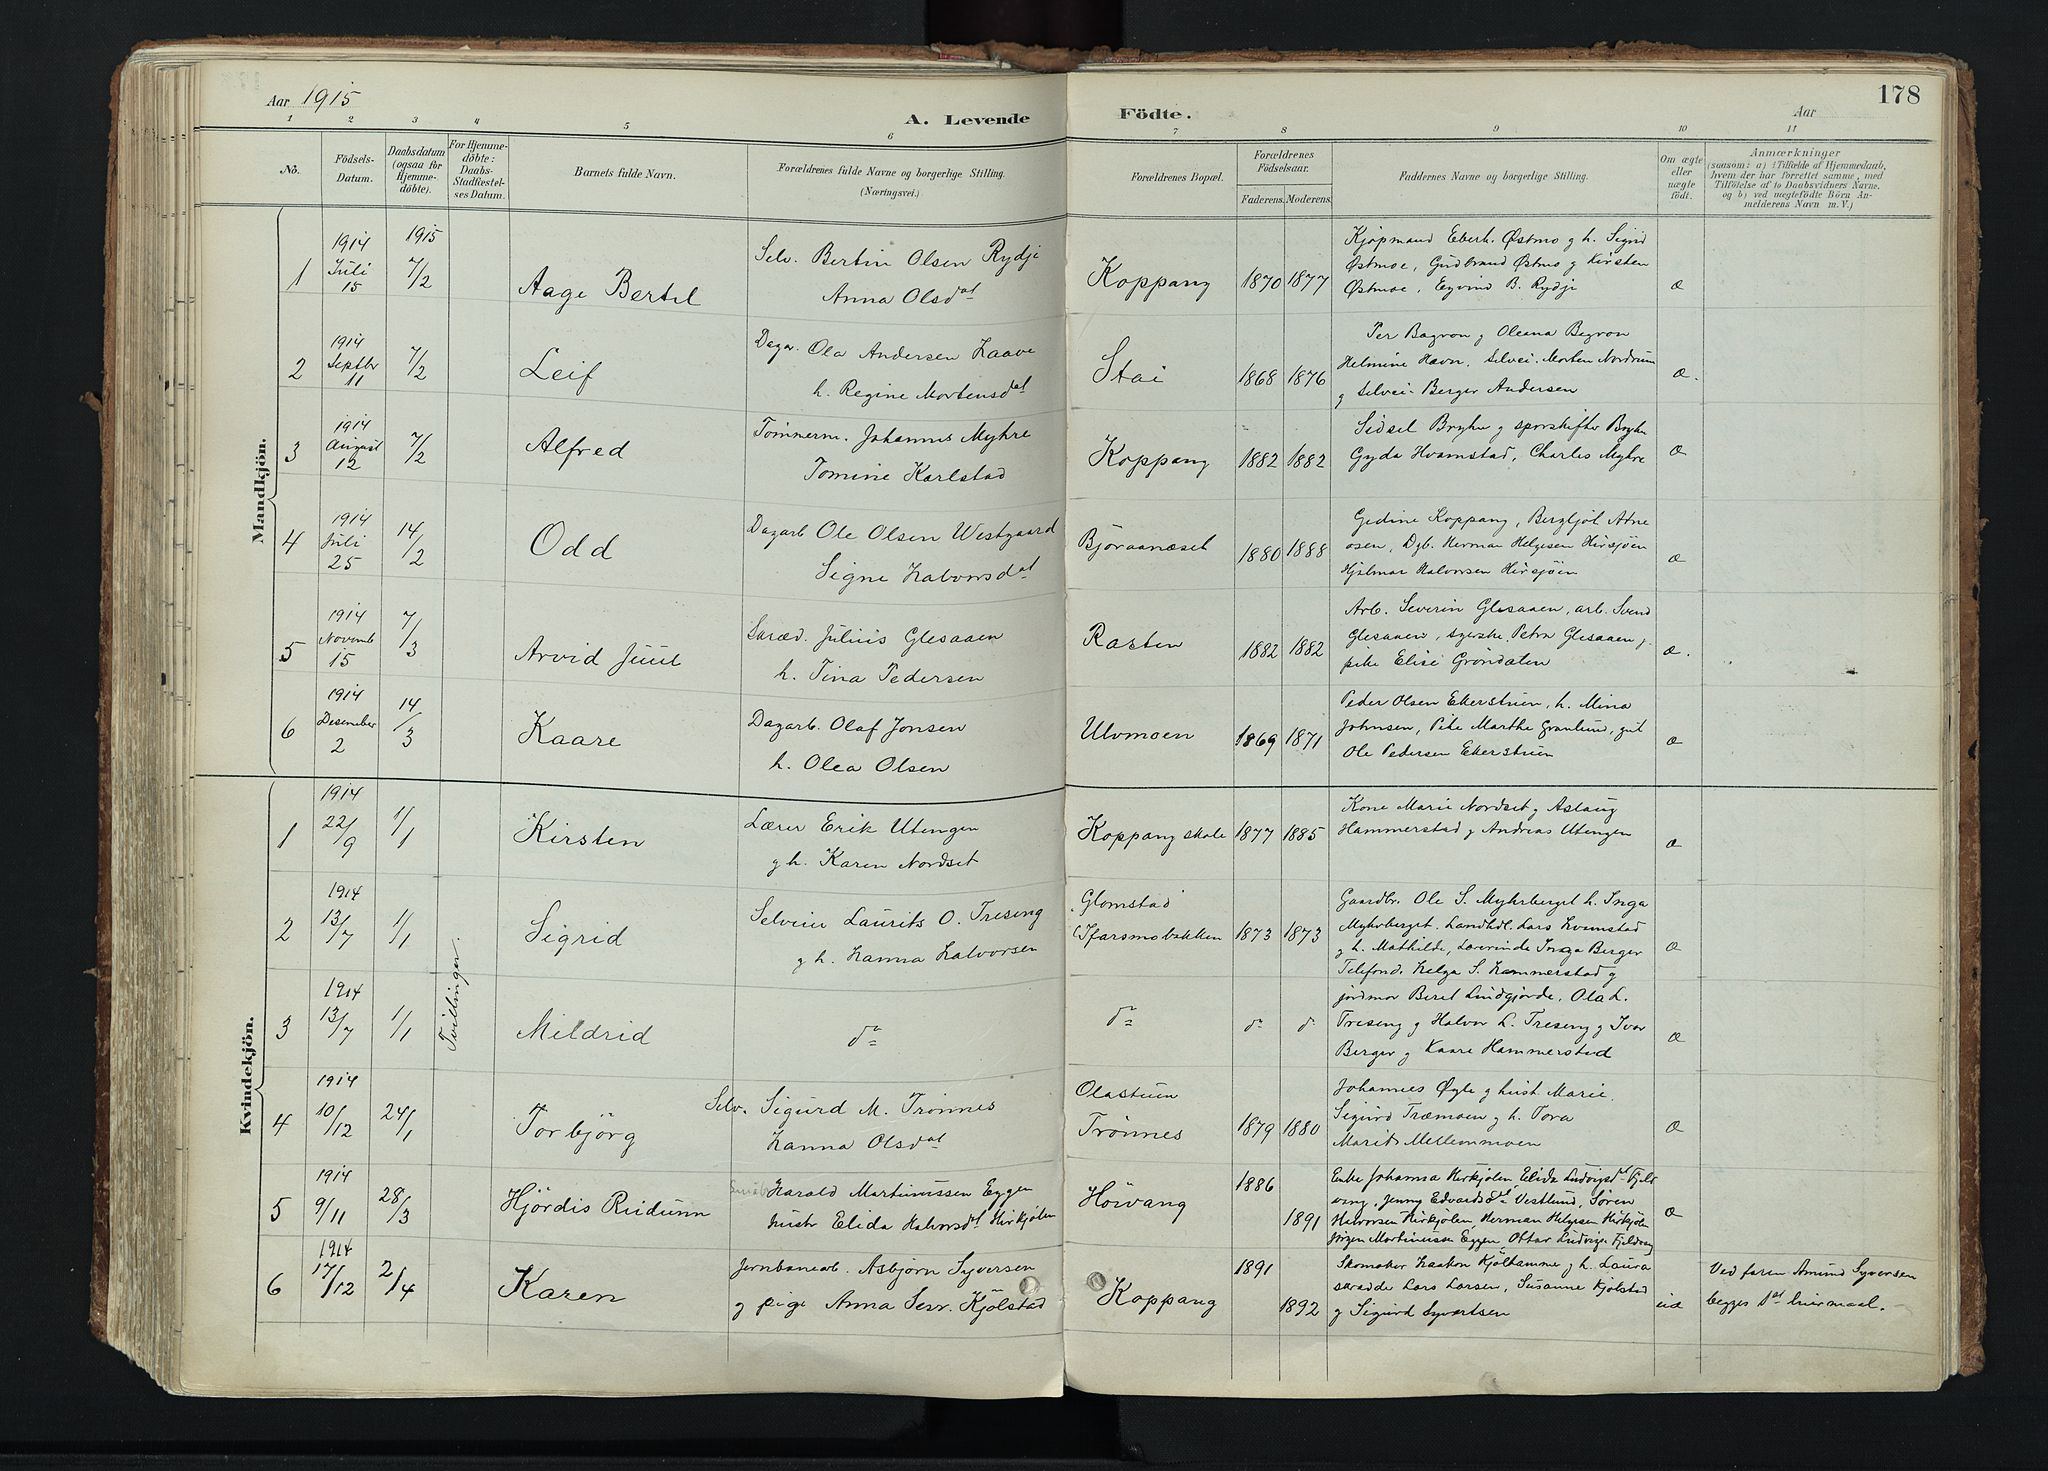 178
Aar 1915
Aar
A. Levende Födte.
1 2 3 4 5 6 7 8 9 10 11
No.
Födsels-Datum.
Daabsdatum (ogsaa for Hjemme-döbte).
For Hjemme-döbte: Daabs-Stadfæstel-ses Datum.
Barnets fulde Navn.
Forældrenes fulde Navne og borgerlige Stilling.
(Næringsvei.)
Forældrenes Bopæl.
Forældrenes Födselsaar.
Faderens. Moderens.
Faddernes Navne og borgerlige Stilling.
Om ægte eller uægte födt.
Anmærkninger
(saasom: a) i Tilfælde af Hjemmedaab,
hvem der har forrettet samme, med
Tilföielse af to Daabsvidners Navne,
og b) ved uægtefödte Börn An-
melderens Navn m. V.)
Mandkjön.
1
1914 Juli 15
1915 7/2
Aage Bertil
Selv. Bertin Olsen Rydji
Anna Olsdat
Koppang
1870 1877
Kjøpmand Eberh. Østmo g h. Sigrid
Østmoe, Gudbrand Østmo g Kirsten
Østmoe, Eyvind B. Rydji
æ
2
1914 Septbr 11
7/2
Leif
Dagar. Ola Andersen Haave
h. Regine Mortensdat
Stai
1868 1876
Per Bagron g Oleana Bagron
Helmine Havn. selvei. Morten Nordrum
g selvei. Berger Andersen
æ.
3
1914 August 12
7/2
Alfred
Tömmerm. Johannes Myhre
Tomine Karlstad
Koppang
1882 1882
Sidsel Bryhn g sporskifter Bryhn
Gyda Hvamstad, Charles Myhre
æ
4
1914 Juli 25
14/2
Odd
Dagarb Ole Olsen Westgaard
Signe Halvorsdat
Björaanæset
1880 1888
Gedine Koppang, Bergljöt Atne
osen, Dgb. Herman Helgesen Hirsjöen
Hjalmar Halvorsen Hirsjöen
æ
5
1914 Novemb 15
7/3
Arvid Juul
Skræd. Julius Glesaaen
h. Tina Pedersen
Rasten
1882 1882
Arb. Severin Glesaaen, arb. Svend
Glesaaen, syerske Petra Glesaaen g
pike Elise Gröndalen
æ.
6
1914 Desember 2
14/3
Kaare
Dagarb. Olaf Jonsen
h. Olea Olsen
Ulvmoen
1869 1871
Peder Olsen Ekerstuen, h. Mina
Johnsen, Pike Marthe Granlund, gut
Ole Pedersen Ekerstuen
æ
Kvindekjön.
1
1914 22/9
1/1
Kirsten
Lærer Erik Utengen
g h. Karen Nordset
Koppang skole
1877 1885
Kone Marie Nordset g Aslaug
Hammerstad g Andreas Utengen
æ
2
1914 13/7
1/1
Tvillinger.
Sigrid
Selveier Laurits O. Treseng
g h. Hanna Halvorsen
Glomstad
1873 1873
Gaardbr. Ole S. Myhrberget h. Inga
Myhrberget. Landhdl. Lars Hvamstad
g h. Mathilde, Lærerinde Inga Berger
Telefond. Helga S. Hammerstad g
æ
3
1914 13/7
1/1
Mildrid
do
do
do do
jordmor Beret Lindgjorde, Ola L.
Treseng g Halvor L. Treseng g Ivar
Berger g Kaare Hammerstad
æ
4
1914 10/12
24/1
Torbjörg
Selv. Sigurd M. Trönnes
Hanna Olsdat
Olastuen
Trönnes
1879 1880
Johannes Øgle g hust. Marie.
Sigurd Træmoen g h. Tora
Marit Mellemmoen
æ
5
1914 9/11
28/3
Hjördis Reidunn
Harald Martinussen Eggen
hustr Elida Halvorsdt Hirkjölen
Höivang
1886
1891
Enke Johanna Hirkjölen Elida Ludvigsdt Fjeld
vang, Jenny Edvardsdt Vestlund, Sören
Halvorsen Hirkjölen, Herman Helgesen Hirkjölen
Jörgen Martinussen Eggen Ottar Ludvigs. Fjeldvang
æ
6
1914 17/12
2/4
Karen
Jernbanearb. Asbjorn Syversen
g pige Anna Serr. Kjölstad
Koppang
1891
1892
Skomaker Haakon Kjölhamme g h. Laura
skrædde Lars Larsen, Susanne Kjölstad
g Sigurd Syvertsen
uæ
Ved faren Amund Syversen
begges 1st leiermaal.